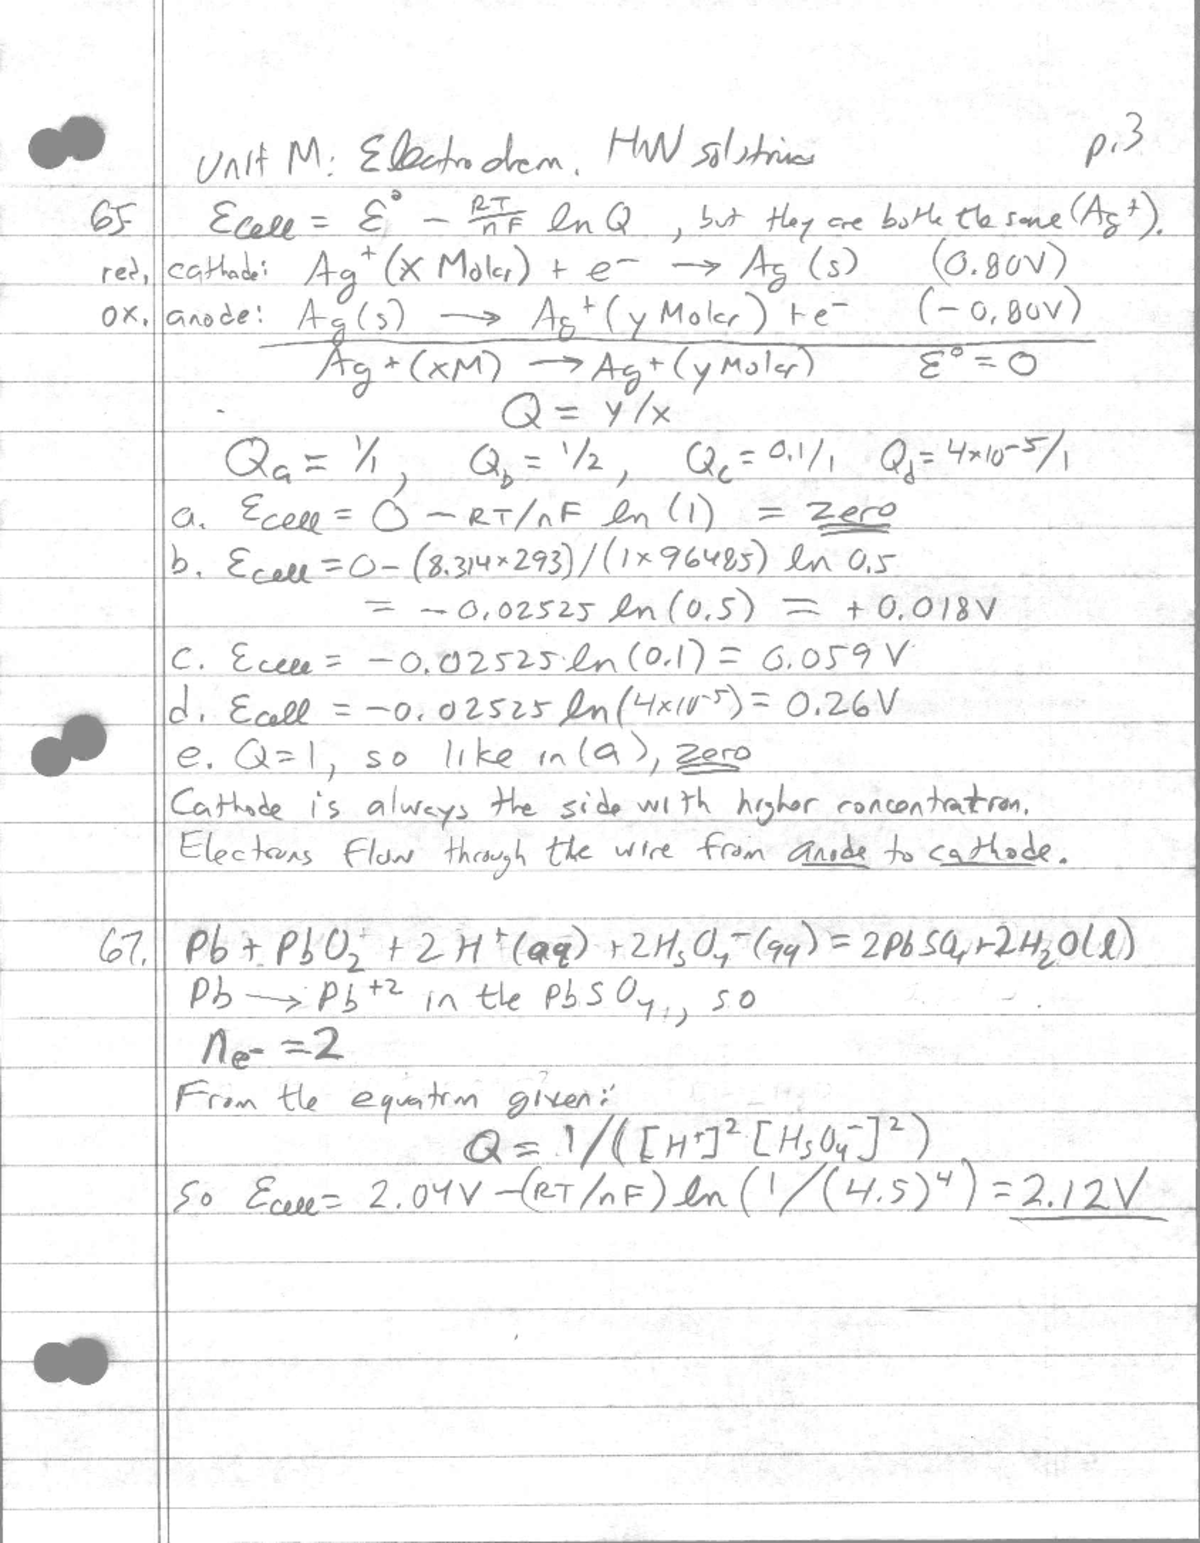 Unit M: Electrochem. HW solutions p.3
65 Ecell = ℰ° − RT/nF ln Q, but they are both the same (Ag+).
red, cathode: Ag+ (x Molar) + e− → Ag (s) (0.80V)
ox, anode: Ag(s) → Ag+ (y Molar) + e− (−0.80V)
Ag+(xM) → Ag+(y Molar) ℰ° = 0
Q = y/x
Qa = 1/1, Qb = 1/2, Qc = 0.1/1 Qd = 4×10-5/1
a. Ecell = 0 − RT/nF ln (1) = zero
b. Ecell = 0 − (8.314×293)/(1×96485) ln 0.5
= −0.02525 ln (0.5) = +0.018V
c. Ecell = −0.02525 ln (0.1) = 0.059 V
d. Ecell = −0.02525 ln (4×10-5) = 0.26V
e. Q=1, so like in (a), zero
Cathode is always the side with higher concentration.
Electrons flow through the wire from anode to cathode.
67. Pb + PbO2 + 2 H+(aq) + 2HSO4−(aq) = 2PbSO4 + 2H2O(l)
Pb → Pb+2 in the PbSO4, so
ne− = 2
From the equation given:
Q = 1/([H+]2 [HSO4−]2)
So Ecell = 2.04V −(RT/nF) ln (1/(4.5)4) = 2.12V